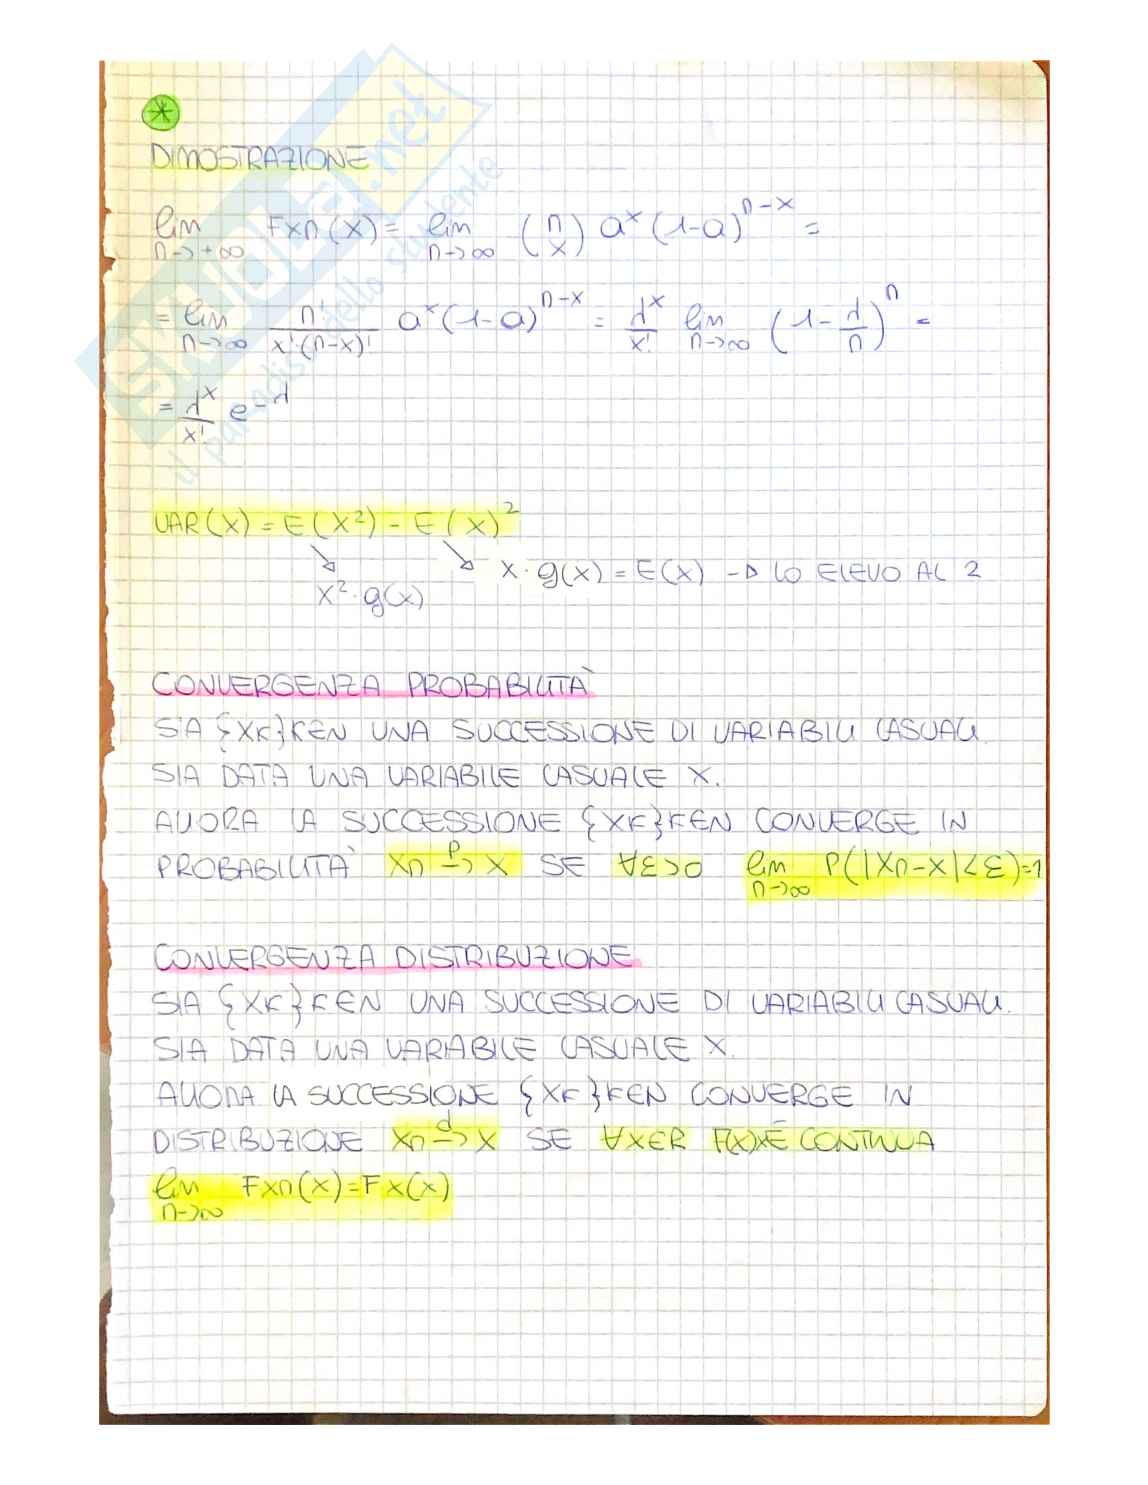 *
DIMOSTRAZIONE
lim n->+∞ Fxn(x) = lim n->∞ (n x) a^x (1-a)^n-x =
= lim n->∞ n! / x!·(n-x)! a^x (1-a)^n-x = λ^x / x! lim n->∞ (1 - λ/n)^n =
= λ^x / x! e^-λ
VAR(X) = E(X²) - E(X)²
x·g(x) = E(x) -> LO ELEVO AL 2
x²·g(x)
CONVERGENZA PROBABILITÀ
SIA {XK}KEN UNA SUCCESSIONE DI VARIABILI CASUALI.
SIA DATA UNA VARIABILE CASUALE X.
ALLORA LA SUCCESSIONE {XK}KEN CONVERGE IN
PROBABILITÀ Xn -p-> X SE ∀ε>0 lim n->∞ P(|Xn-X|<ε)=1
CONVERGENZA DISTRIBUZIONE
SIA {XK}KEN UNA SUCCESSIONE DI VARIABILI CASUALI.
SIA DATA UNA VARIABILE CASUALE X.
ALLORA LA SUCCESSIONE {XK}KEN CONVERGE IN
DISTRIBUZIONE Xn -d-> X SE ∀XER F(X)XÈ CONTINUA
lim n->∞ Fxn(x)=Fx(x)
SKUOLA.net
il paradiso dello studente